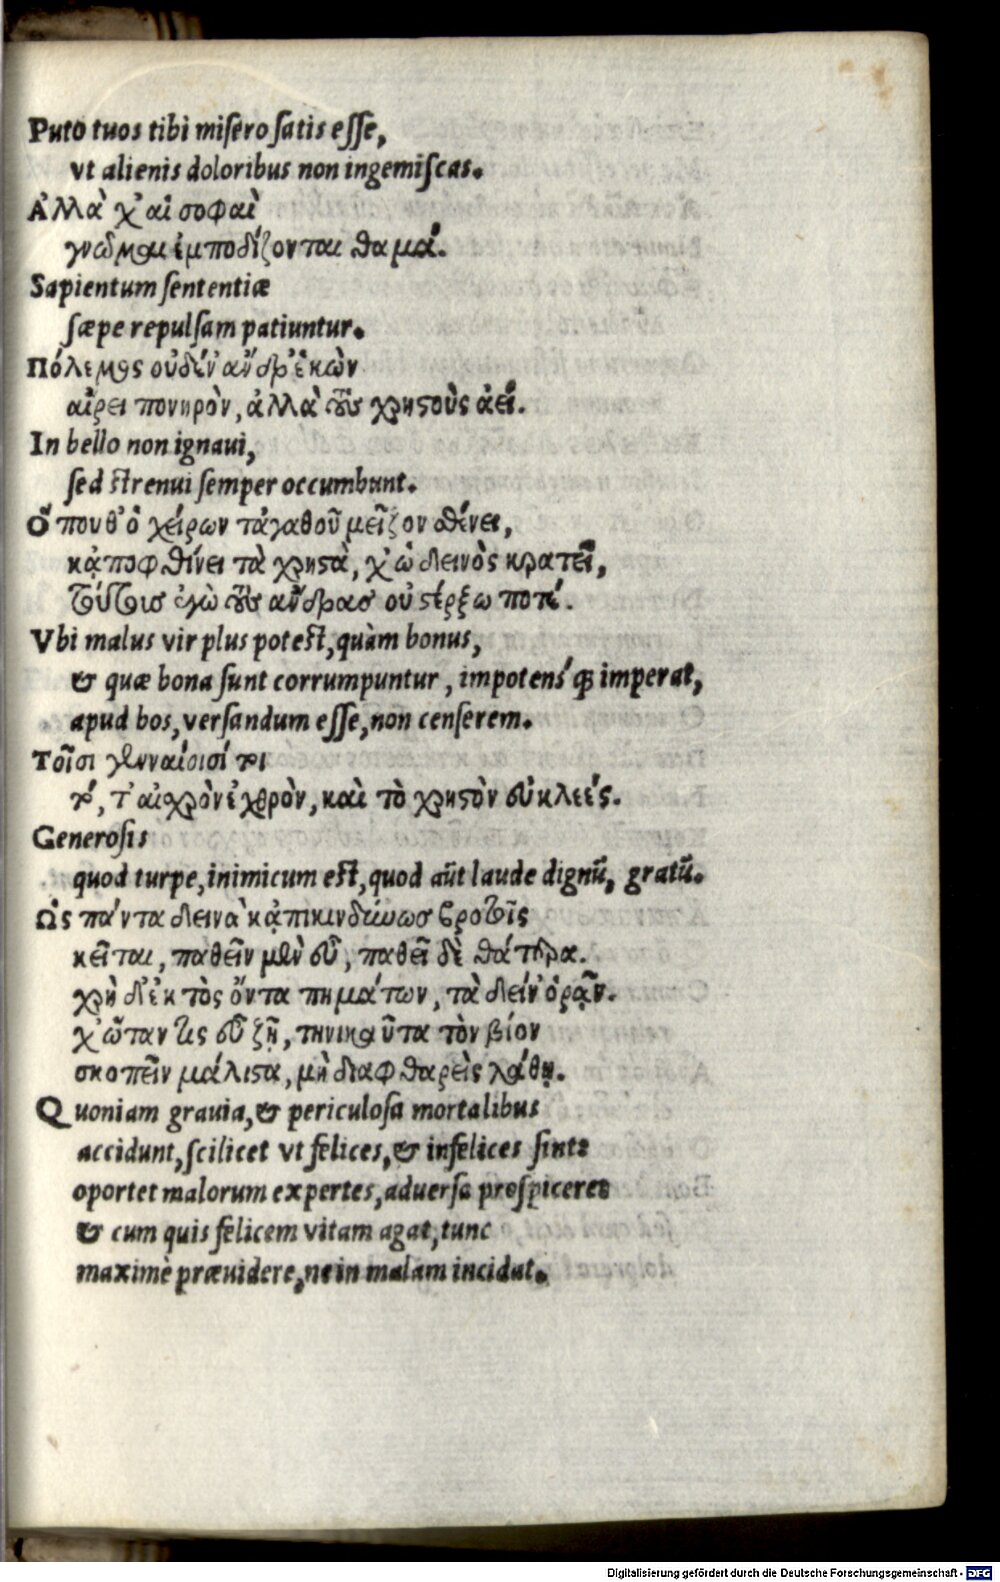 Puto tuos tibi misero satis esse,
vt alienis doloribus non ingemiscas.
Ἀλλὰ χ' αἱ σοφαὶ
γνῶμαι ἐμποδίζονται θαμά.
Sapientum sententiæ
sæpe repulsam patiuntur.
Πόλεμος οὐδέν' ἄνδρ' ἑκὼν
αἱρεῖ πονηρὸν, ἀλλὰ τοὺς χρηστοὺς ἀεί.
In bello non ignaui,
sed strenui semper occumbunt.
Ὅπου θ' ὁ χείρων τἀγαθοῦ μεῖζον σθένει,
κἀποφθίνει τὰ χρηστὰ, χ' ὠ δεινὸς κρατεῖ,
τούτοις ἐγὼ τοὺς ἄνδρας οὐ στέρξω ποτέ.
Vbi malus vir plus potest, quàm bonus,
& quæ bona sunt corrumpuntur, impotens'q; imperat,
apud hos, versandum esse, non censerem.
Τοῖσι γενναίοισί τοι
τό, τ' αἰσχρὸν ἐχθρὸν, καὶ τὸ χρηστὸν εὐκλεές.
Generosis
quod turpe, inimicum est, quod aūt laude dignū, gratū.
Ὡς πάντα δεινὰ κἀπικινδύνως βροτοῖς
κεῖται, παθεῖν μὲν εὖ, παθεῖ δὲ θάτερα.
χρὴ δ' ἐκτὸς ὄντα πημάτων, τὰ δείν' ὁρᾷν.
χ' ὥταν τις εὖ ζῇ, τηνικαῦτα τὸν βίον
σκοπεῖν μάλιστα, μὴ διαφθαρεὶς λάθῃ.
Quoniam grauia, & periculosa mortalibus
accidunt, scilicet vt felices, & infelices sint:
oportet malorum expertes, aduersa prospicere:
& cum quis felicem vitam agat, tunc
maximè præuidere, ne in malam incidat.
Digitalisierung gefördert durch die Deutsche Forschungsgemeinschaft - DFG